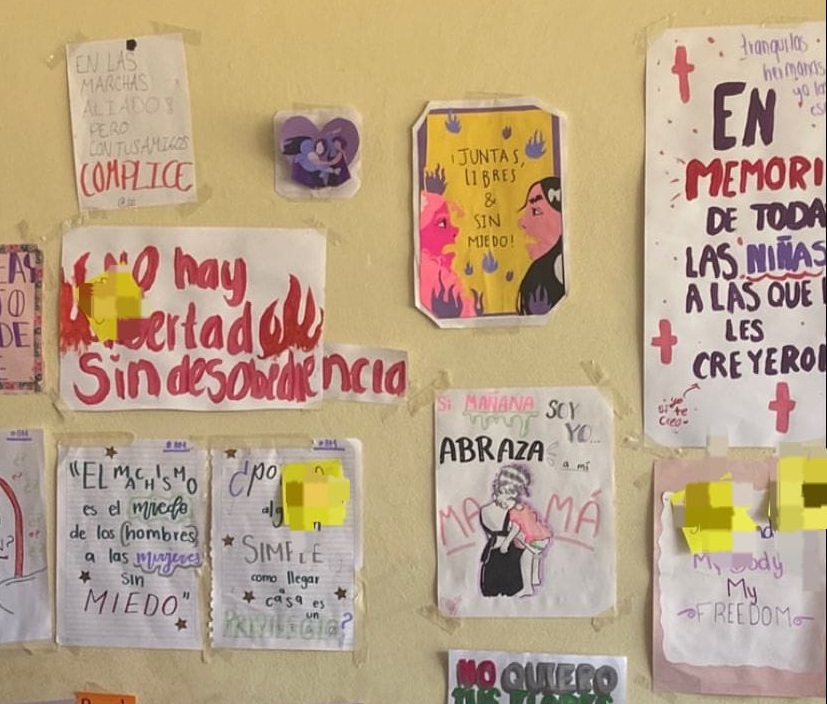 EN LAS
MARCHAS
ALIADO?
PERO
CON TUS AMIGOS
COMPLICE
¡JUNTAS,
LIBRES
&
SIN
MIEDO!
tranquilas
hermanas
yo las
EN
MEMORI
DE TODA
LAS NIÑAS
A LAS QUE
LES
CREYERO
si yo
te
creo
NO hay
ertad
Sin desobediencia
DE
#8M
"EL MACHISMO
es el miedo
de los hombres
a las mujeres
sin
MIEDO"
#8M
¿po
alg
SIMPLE
como llegar
a
casa es
un
PRIVILEGIO?
Si MAÑANA SOY
YO...
ABRAZA
a mi
MAMÁ
My Body
My
FREEDOM
NO QUIERO
TUS FLORES